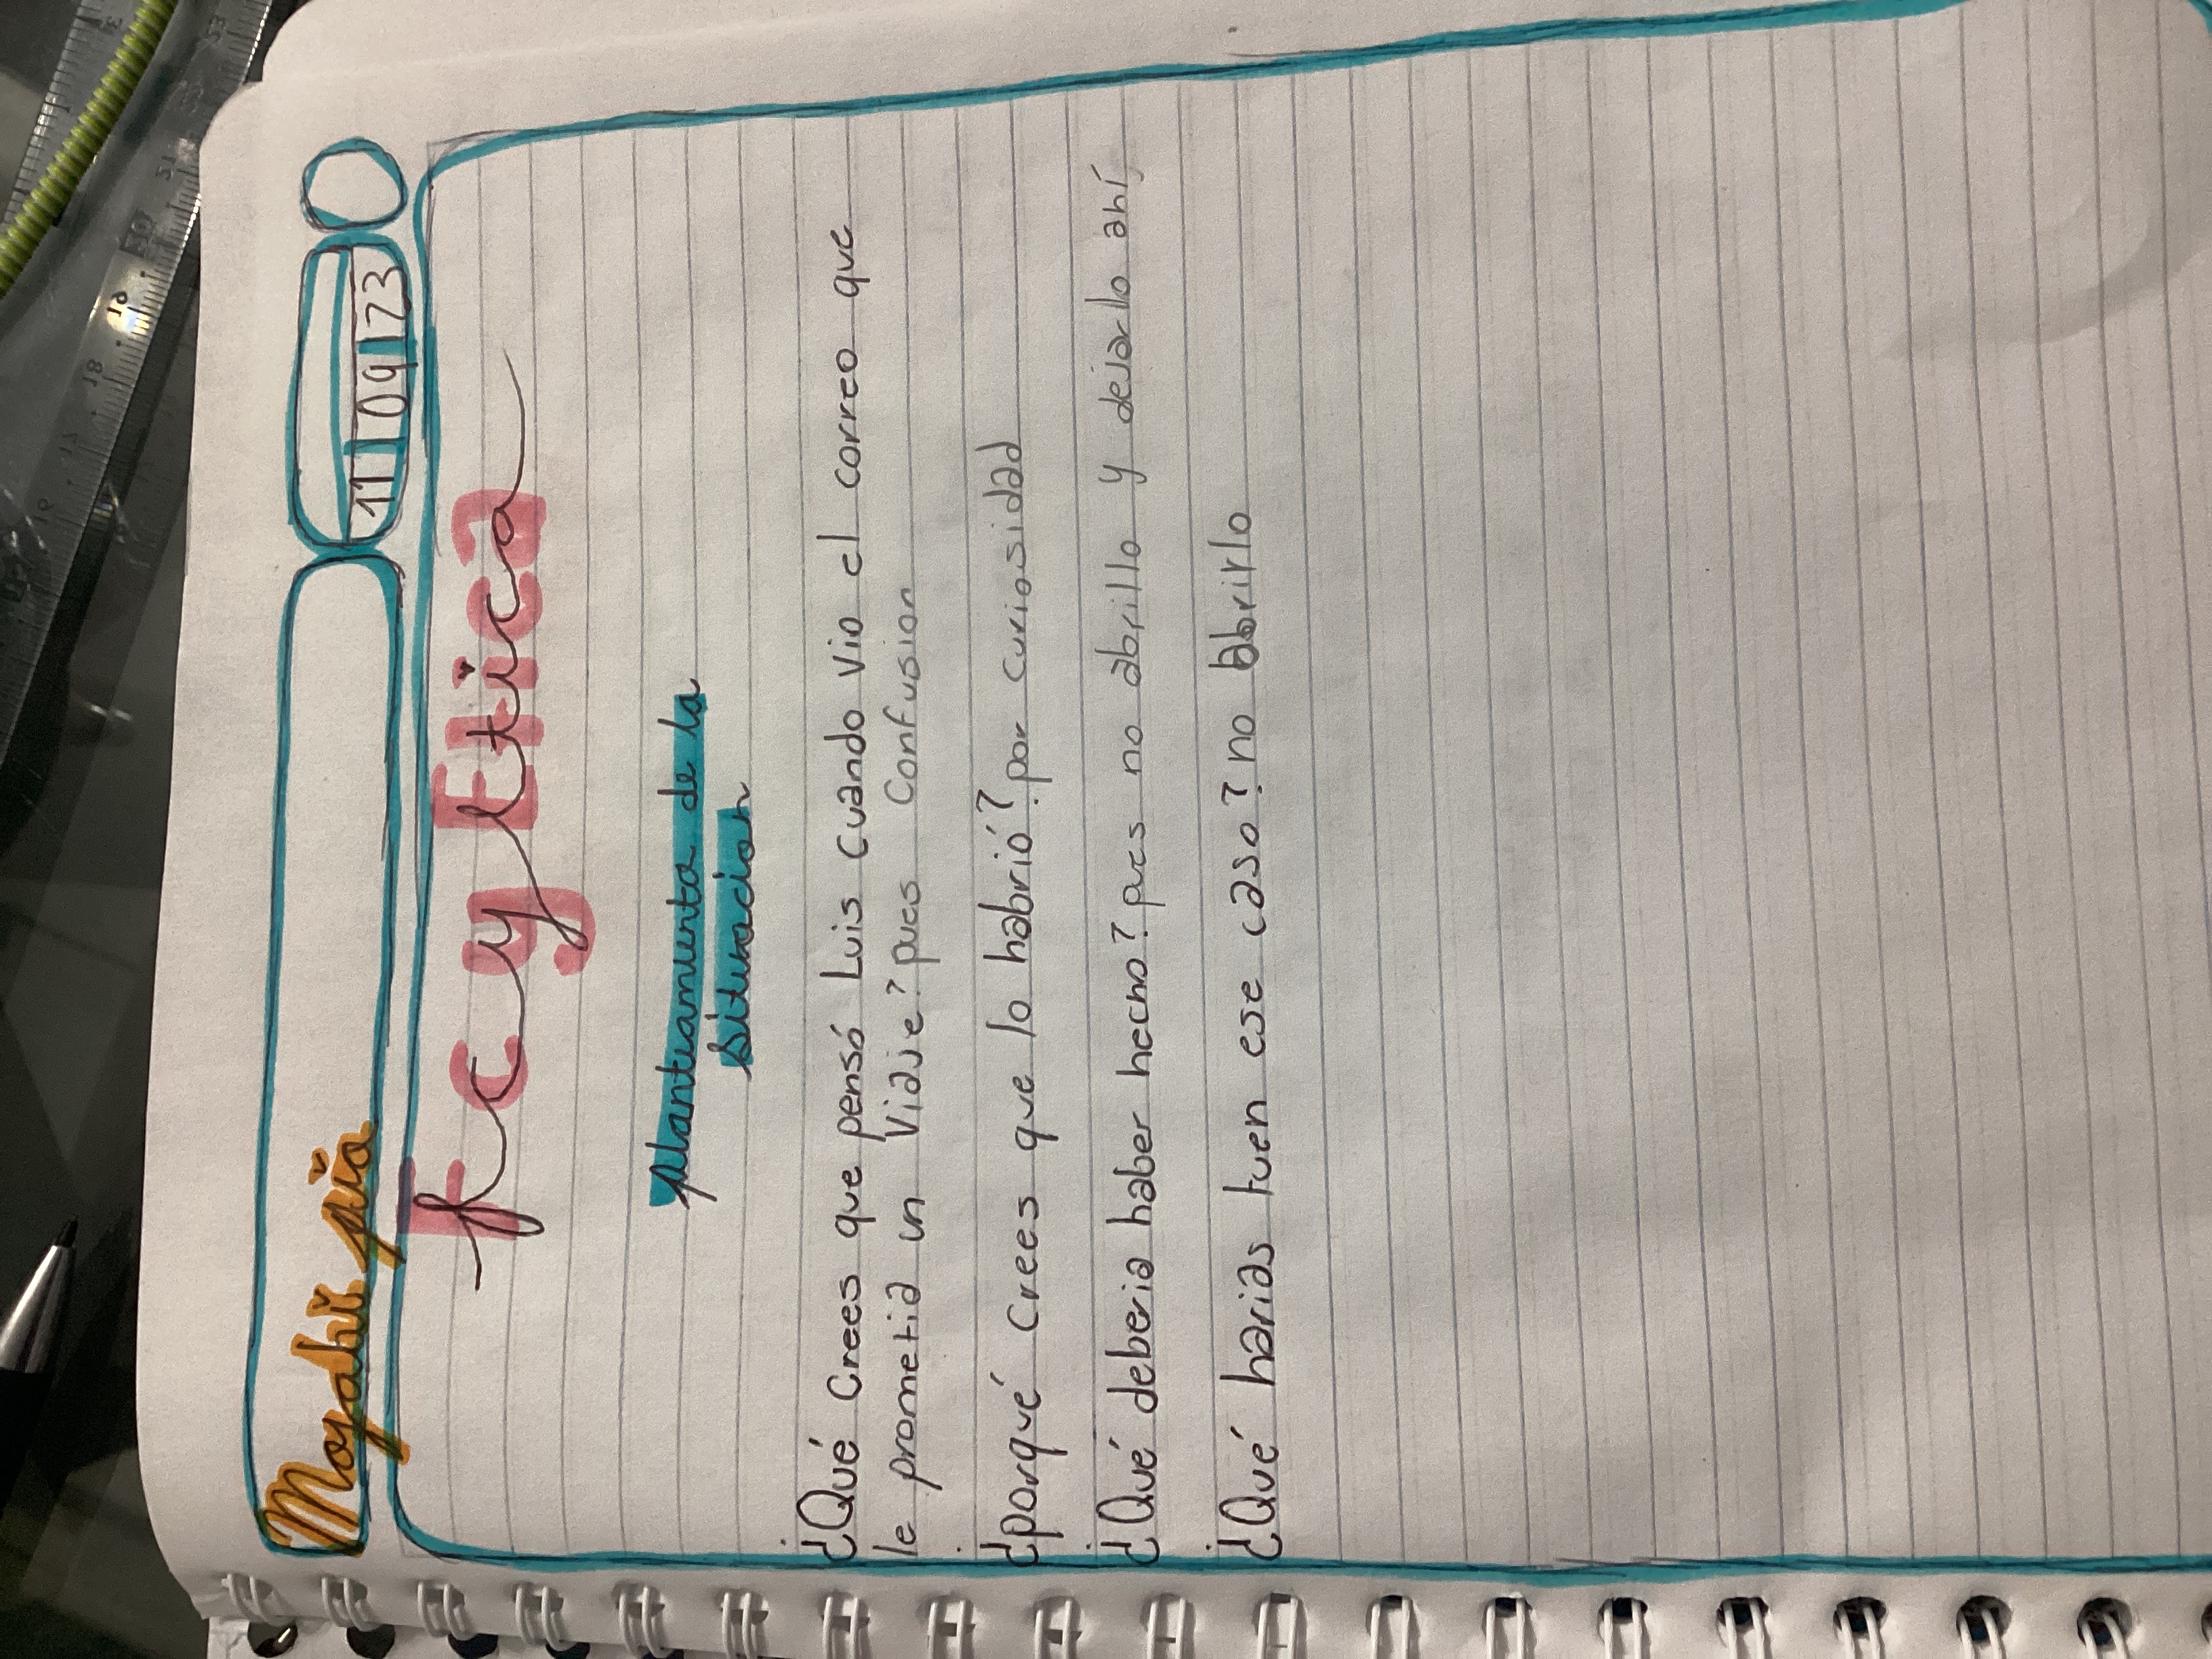 Mogadui pía
11 09 23
F c y Etica
planteamiento de la
situacion
¿Qué crees que pensó Luis cuando vio el correo que
le prometia un viaje? pues confusion
¿porqué crees que lo habrió? por curiosidad
¿Qué deberia haber hecho? pues no abrillo y dejarllo ahí
¿Qué harias tuen ese caso? no abrirlo